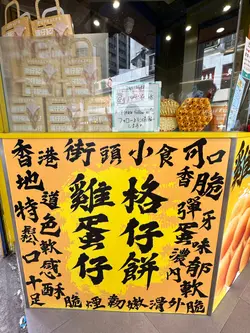 香港街頭小食可口
地道
特色
鬆軟
口感
十足
酥脆煙韌嫩滑外脆
雞蛋仔
格仔餅
香脆
彈牙
蛋味
濃郁
內軟